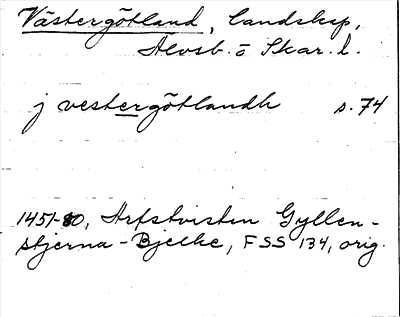 Västergötland, landskap,
Älvsb. o Skar. l.
j vestergötlandh s. 74
1451-80, Arfstvisten Gyllen-
stjerna-Bjelke, FSS 134, orig.